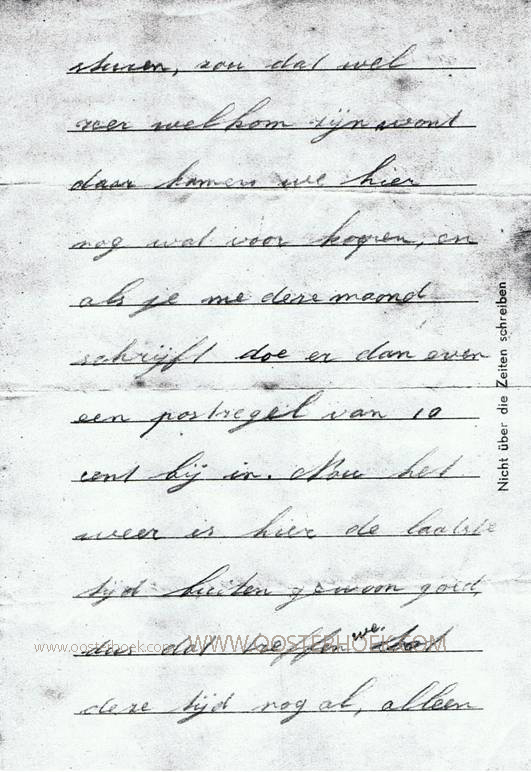 sturen, zou dat wel
zeer welkom zijn, want
daar kamen we hier
nog wat voor kopen, en
als je me deze maand
schrijft doe er dan even
een postzegel van 10
cent bij in. Nou het
weer is hier de laatste
tijd buiten gewoon goed,
dus dat treffen we
deze tijd nog al, alleen
Nicht über die Zeiten schreiben
www.oosterhoek.com
WWW.OOSTERHOEK.COM